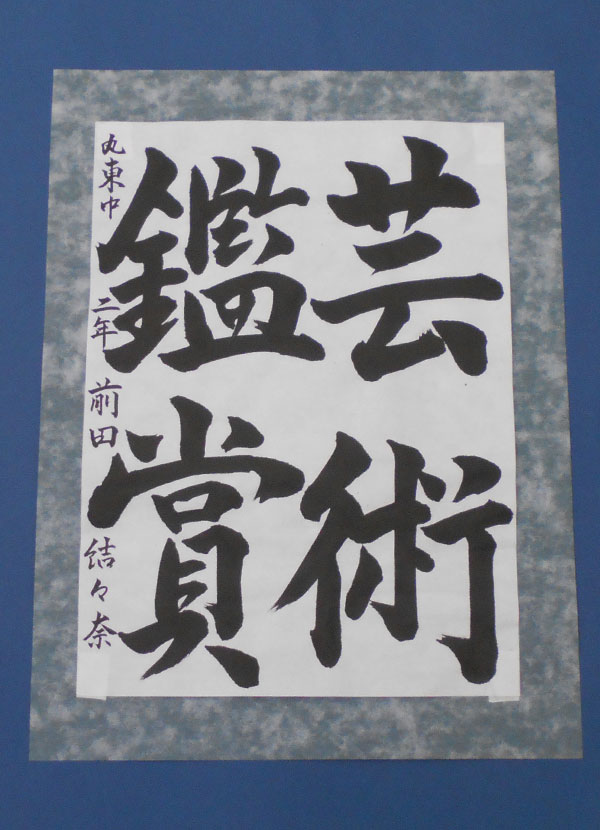 芸術
鑑賞
丸東中 二年 前田 結々奈